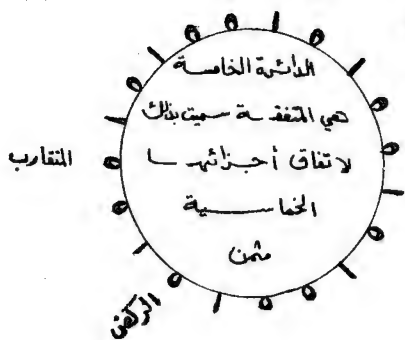 الدائرة الخامسة
هي المتفقة سميت بذلك
لاتفاق أجزائها
الخماسية
مثمن
المتقارب
الركض